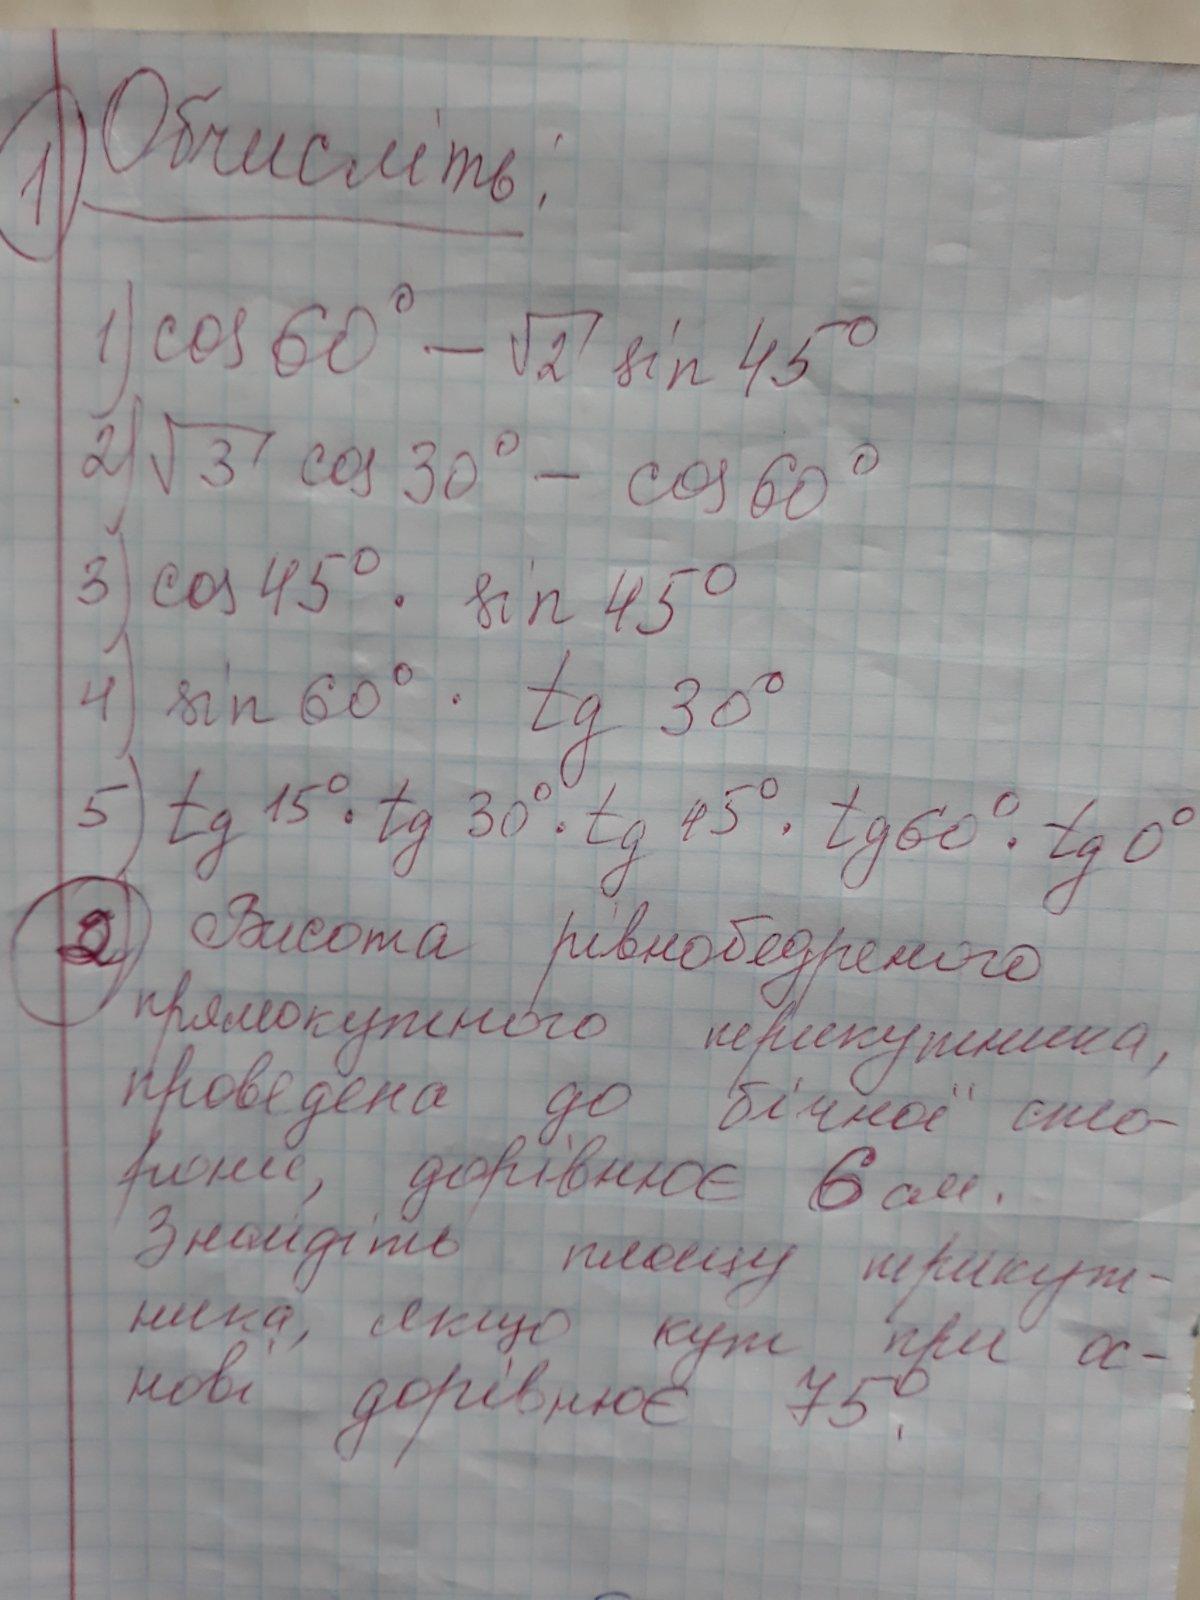 1) Обчисліть:
1) cos 60° – √2 sin 45°
2) √3 cos 30° – cos 60°
3) cos 45° · sin 45°
4) sin 60° · tg 30°
5) tg 15° · tg 30° · tg 45° · tg 60° · tg 0°
2 Висота рівнобедреного
прямокутного трикутника,
проведена до бічної сто-
рони, дорівнює 6 см.
Знайдіть площу трикут-
ника, якщо кут при ос-
нові дорівнює 75°.